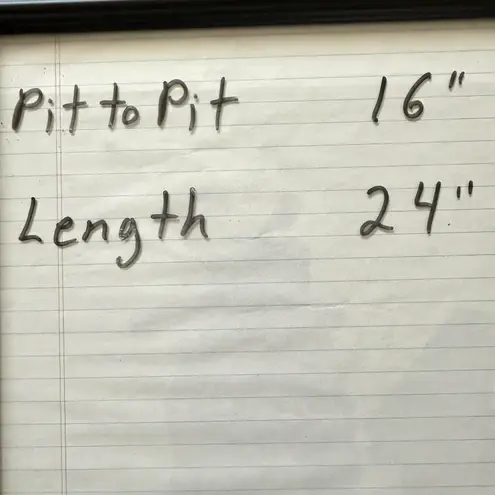 Pit to Pit 16"
Length 24"